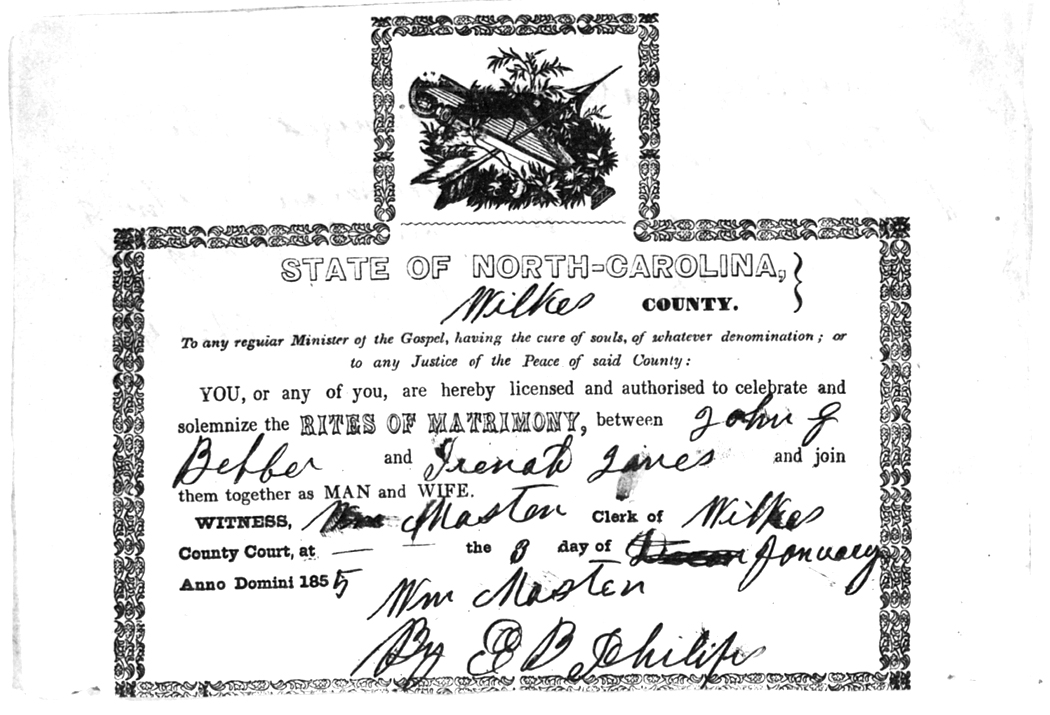 STATE OF NORTH-CAROLINA,
Wilkes COUNTY.
To any regular Minister of the Gospel, having the cure of souls, of whatever denomination; or
to any Justice of the Peace of said County:
YOU, or any of you, are hereby licensed and authorised to celebrate and
solemnize the RITES OF MATRIMONY, between John G
Bebber and Irenah Jones and join
them together as MAN and WIFE.
WITNESS, Wm Masten Clerk of Wilkes
County Court, at — — the 3 day of January
Anno Domini 1855
Wm Masten
By E B Philips